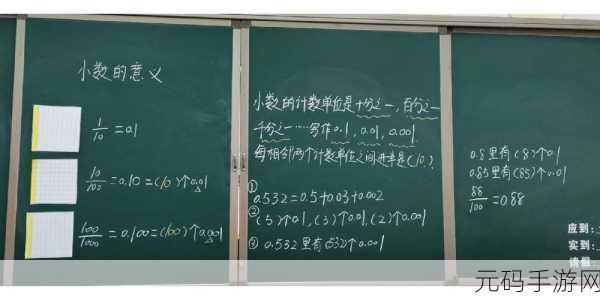 小数的意义
1/10 = 0.1
10/100 = 0.10 = (10)个0.01
100/1000 = 0.100 = (100)个0.001
小数的计数单位是十分之一,百分之一
千分之一……写作0.1,0.01,0.001.
每相邻两个计数单位之间进率是(10.)
①
0.532=0.5+0.03+0.002
②
(5)个0.1,(3)个0.01,(2)个0.001
③ 0.532里有(532)个0.001
0.8里有(8)个0.1
0.85里有(85)个0.01
88/100 = 0.88
应到:
实到:
请假:
元码手游网